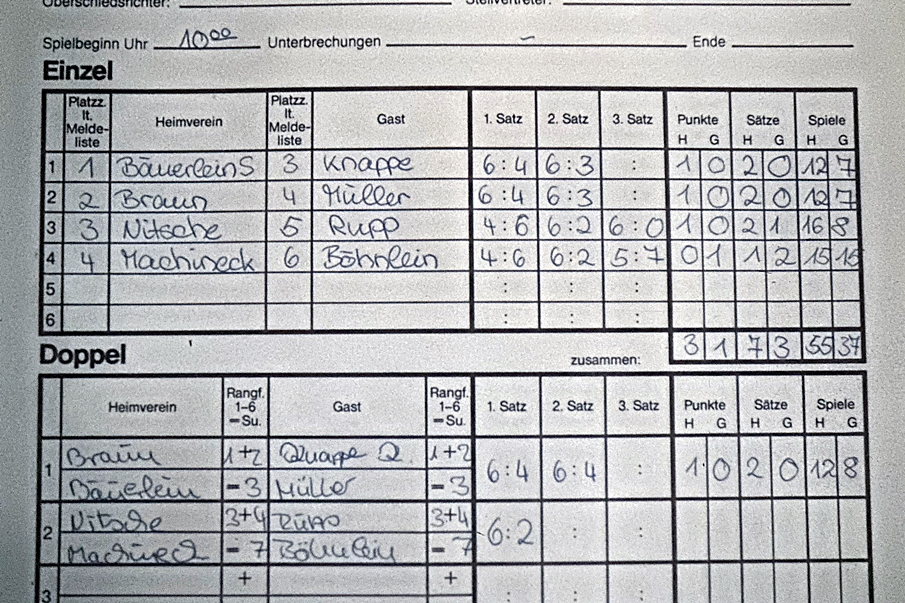 Oberschiedsrichter: Stellvertreter:
Spielbeginn Uhr 10 00 Unterbrechungen – Ende
Einzel
Platzz. lt. Melde-liste Heimverein Platzz. lt. Melde-liste Gast 1. Satz 2. Satz 3. Satz Punkte H G Sätze H G Spiele H G
1 1 Bäuerlein S 3 Knappe 6:4 6:3 : 1 0 2 0 12 7
2 2 Braun 4 Müller 6:4 6:3 : 1 0 2 0 12 7
3 3 Nitsche 5 Rupp 4:6 6:2 6:0 1 0 2 1 16 8
4 4 Machineck 6 Böhnlein 4:6 6:2 5:7 0 1 1 2 15 15
5 : : :
6 : : :
Doppel zusammen: 3 1 7 3 55 37
Heimverein Rangf. 1–6 =Su. Gast Rangf. 1–6 =Su. 1. Satz 2. Satz 3. Satz Punkte H G Sätze H G Spiele H G
1 Braun 1+2 1+2 6:4 6:4 : 1 0 2 0 12 8
Bäuerlein =3 Müller =3
2 Nitsche 3+4 Rupp 3+4 6:2 : :
Machineck =7 Böhnlein =7
3 + + : : :